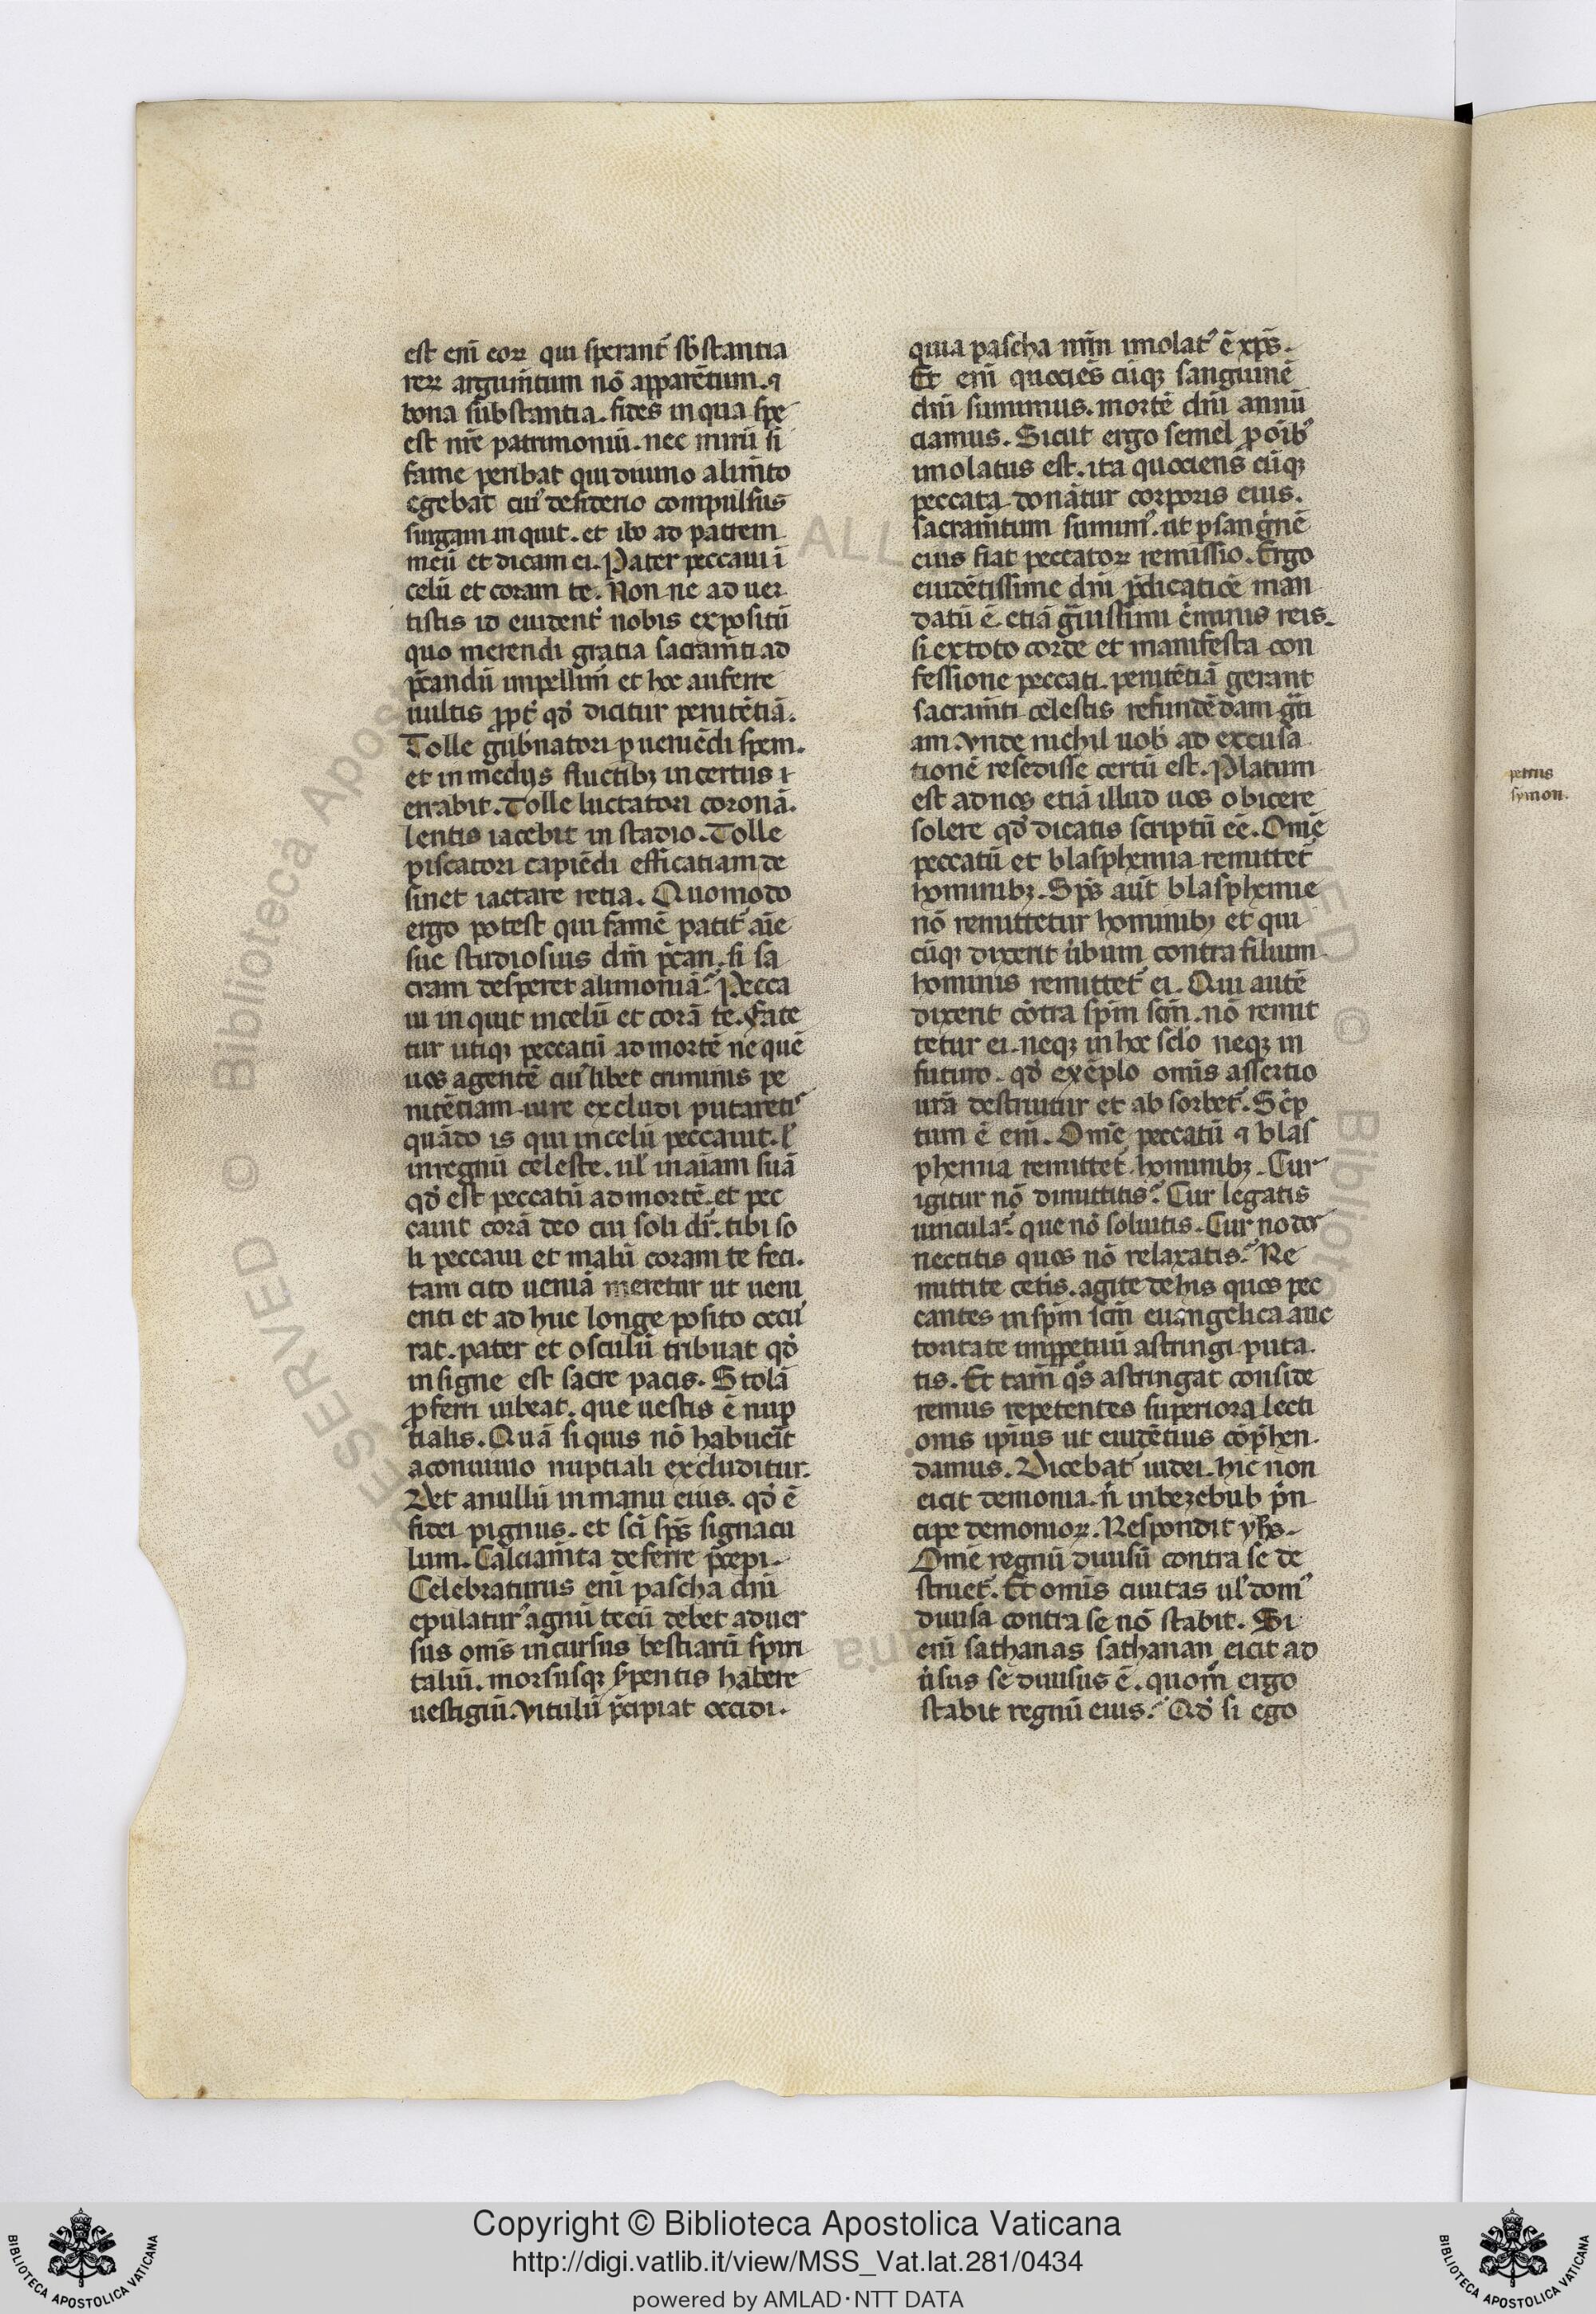 est enī eoꝝ qui sperant᷑ sb̄stantia
reꝝ argum̄tum nō apparētum. ⁊
bona substantia. fides in qua spe
est nr̄e patrimoniū. nec mirū si
fame peribat qui diuino alim̄to
egebat cuiꝰ desiderio compulsus
surgam in quit. et ibo ad patrem
meū et dicam ei. Pater peccaui ī
celū et coram te. Non ne ad uer
tistis id euident᷑ nobis expositū
quo merendi gratia sacram̄ti ad
p̄candū impellim̄ et hoc auferre
uultis ꝓpt̄ qd̓ dicitur penitētiā.
Tolle gub̄natori ꝑ ueniēdi spem.
et in medijs fluctibꝫ in certus
errabit. Tolle luctatori coronā.
lentis iacebit in stadio. Tolle
piscatori capiēdi efficatiam de
sinet iactare retia. Quomodo
ergo potest qui famē patit᷑ aīe
sue studiosius dm̄ p̄cari. si sa
cram desperet alimoniā. Pecca
ui in quit in celū et corā te. Fate
tur utiqꝫ peccatū ad mortē ne quē
uos agentē cuiꝰlibet criminis pe
nitētiam iure excludi putaretis
quādo is qui in celū peccauit. ł
in regnū celeste. ul̓ in aīam suā
qd̓ est peccatū ad mortē. et pec
cauit corā deo cui soli dr̄. tibi so
li peccaui et malū coram te feci.
tam cito ueniā meretur ut ueni
enti et ad huc longe posito occu
rat. pater et osculū tribuat qd̓
in signe est sacre pacis. Stolā
ꝓferri iubeat. que uestis ē nup
tialis. Quā si quis nō habuerit
a conuiuio nuptiali excluditur.
Det anullū in manu eius. qd̓ ē
fidei pignus. et sc̄i sp̄s signacu
lum. Calciam̄ta deferre p̄cepi.
Celebraturus enī pascha dn̄i
epulaturꝰ agnū tectū debet aduer
sus om̄s in cursus bestiarū spiri
taliū. morsusqꝫ s̓pentis habere
uestigiū. Vitulū p̄cipiat occidi.
quia pascha nr̄m imolatꝰ ē xp̄s.
Et enī quociēs cūqꝫ sanguinē
dn̄i sumimus. mortē dn̄i annū
ciamus. Sicut ergo semel ꝓ oīb̓
imolatus est. ita quociens cūqꝫ
peccata donātur corporis eius.
sacram̄tum sumimꝰ. ut ꝑ sang̓nē
eius fiat peccatoꝝ remissio. Ergo
euidētissime dn̄i p̄dicatiōe man
datū ē. etiā g̓uissimi c̓minis reis.
si ex toto corde et manifesta con
fessione peccati. penitētiā gerant
sacram̄ti celestis refundēdam gr̄i
am. Vnde nichil uob̓ ad excusa
tionē resedisse certū est. Platum
est ad nos etiā illud uos obicere
solere qd̓ dicatis scriptū eē. Om̄e
peccatū et blasphemia remittet᷑
hominibꝫ. Sp̄s aut̄ blasphemie
nō remittetur hominibꝫ et qui
cūqꝫ dixerit u̓bum contra filium
hominis remittet᷑ ei. Qui autē
dixerit cōtra spm̄ scm̄. nō remit
tetur ei. neqꝫ in hoc sclo neqꝫ in
futuro. qd̓ exēplo om̄is assertio
urā destruitur et ab sorbet᷑. Sc̓p
tum ē enī. Om̄e peccatū ⁊ blas
phemia remittet᷑ hominibꝫ. Cur
igitur nō dimittitis. Cur legatis
uincula. que nō soluitis. Cur nodos
nectitis quos nō relaxatis. Re
mittite cet̓is. agite de his quos pec
cantes in spm̄ scm̄ euangelica auc
toritate imꝑpetuū astringi puta
tis. Et tam̄ qͦs astringat conside
remus repetentes superiora lecti
onis ip̄ius ut euidētius cōp̓hen
damus. Dicebāt iudei. hic non
eicit demonia. n̓ in bezebub p̓n
cipe demonioꝝ. Respondit yhs̄.
Om̄e regnū diuisū contra se de
struet᷑. Et om̄is ciuitas ul̓ domꝰ
diuisa contra se nō stabit. Si
enī sathanas sathanan eicit ad
u̓sus se diuisus ē. quom̄ ergo
stabit regnū eius. Qd̓ si ego
petrus
symon.
Copyright © Biblioteca Apostolica Vaticana
http://digi.vatlib.it/view/MSS_Vat.lat.281/0434
powered by AMLAD·NTT DATA